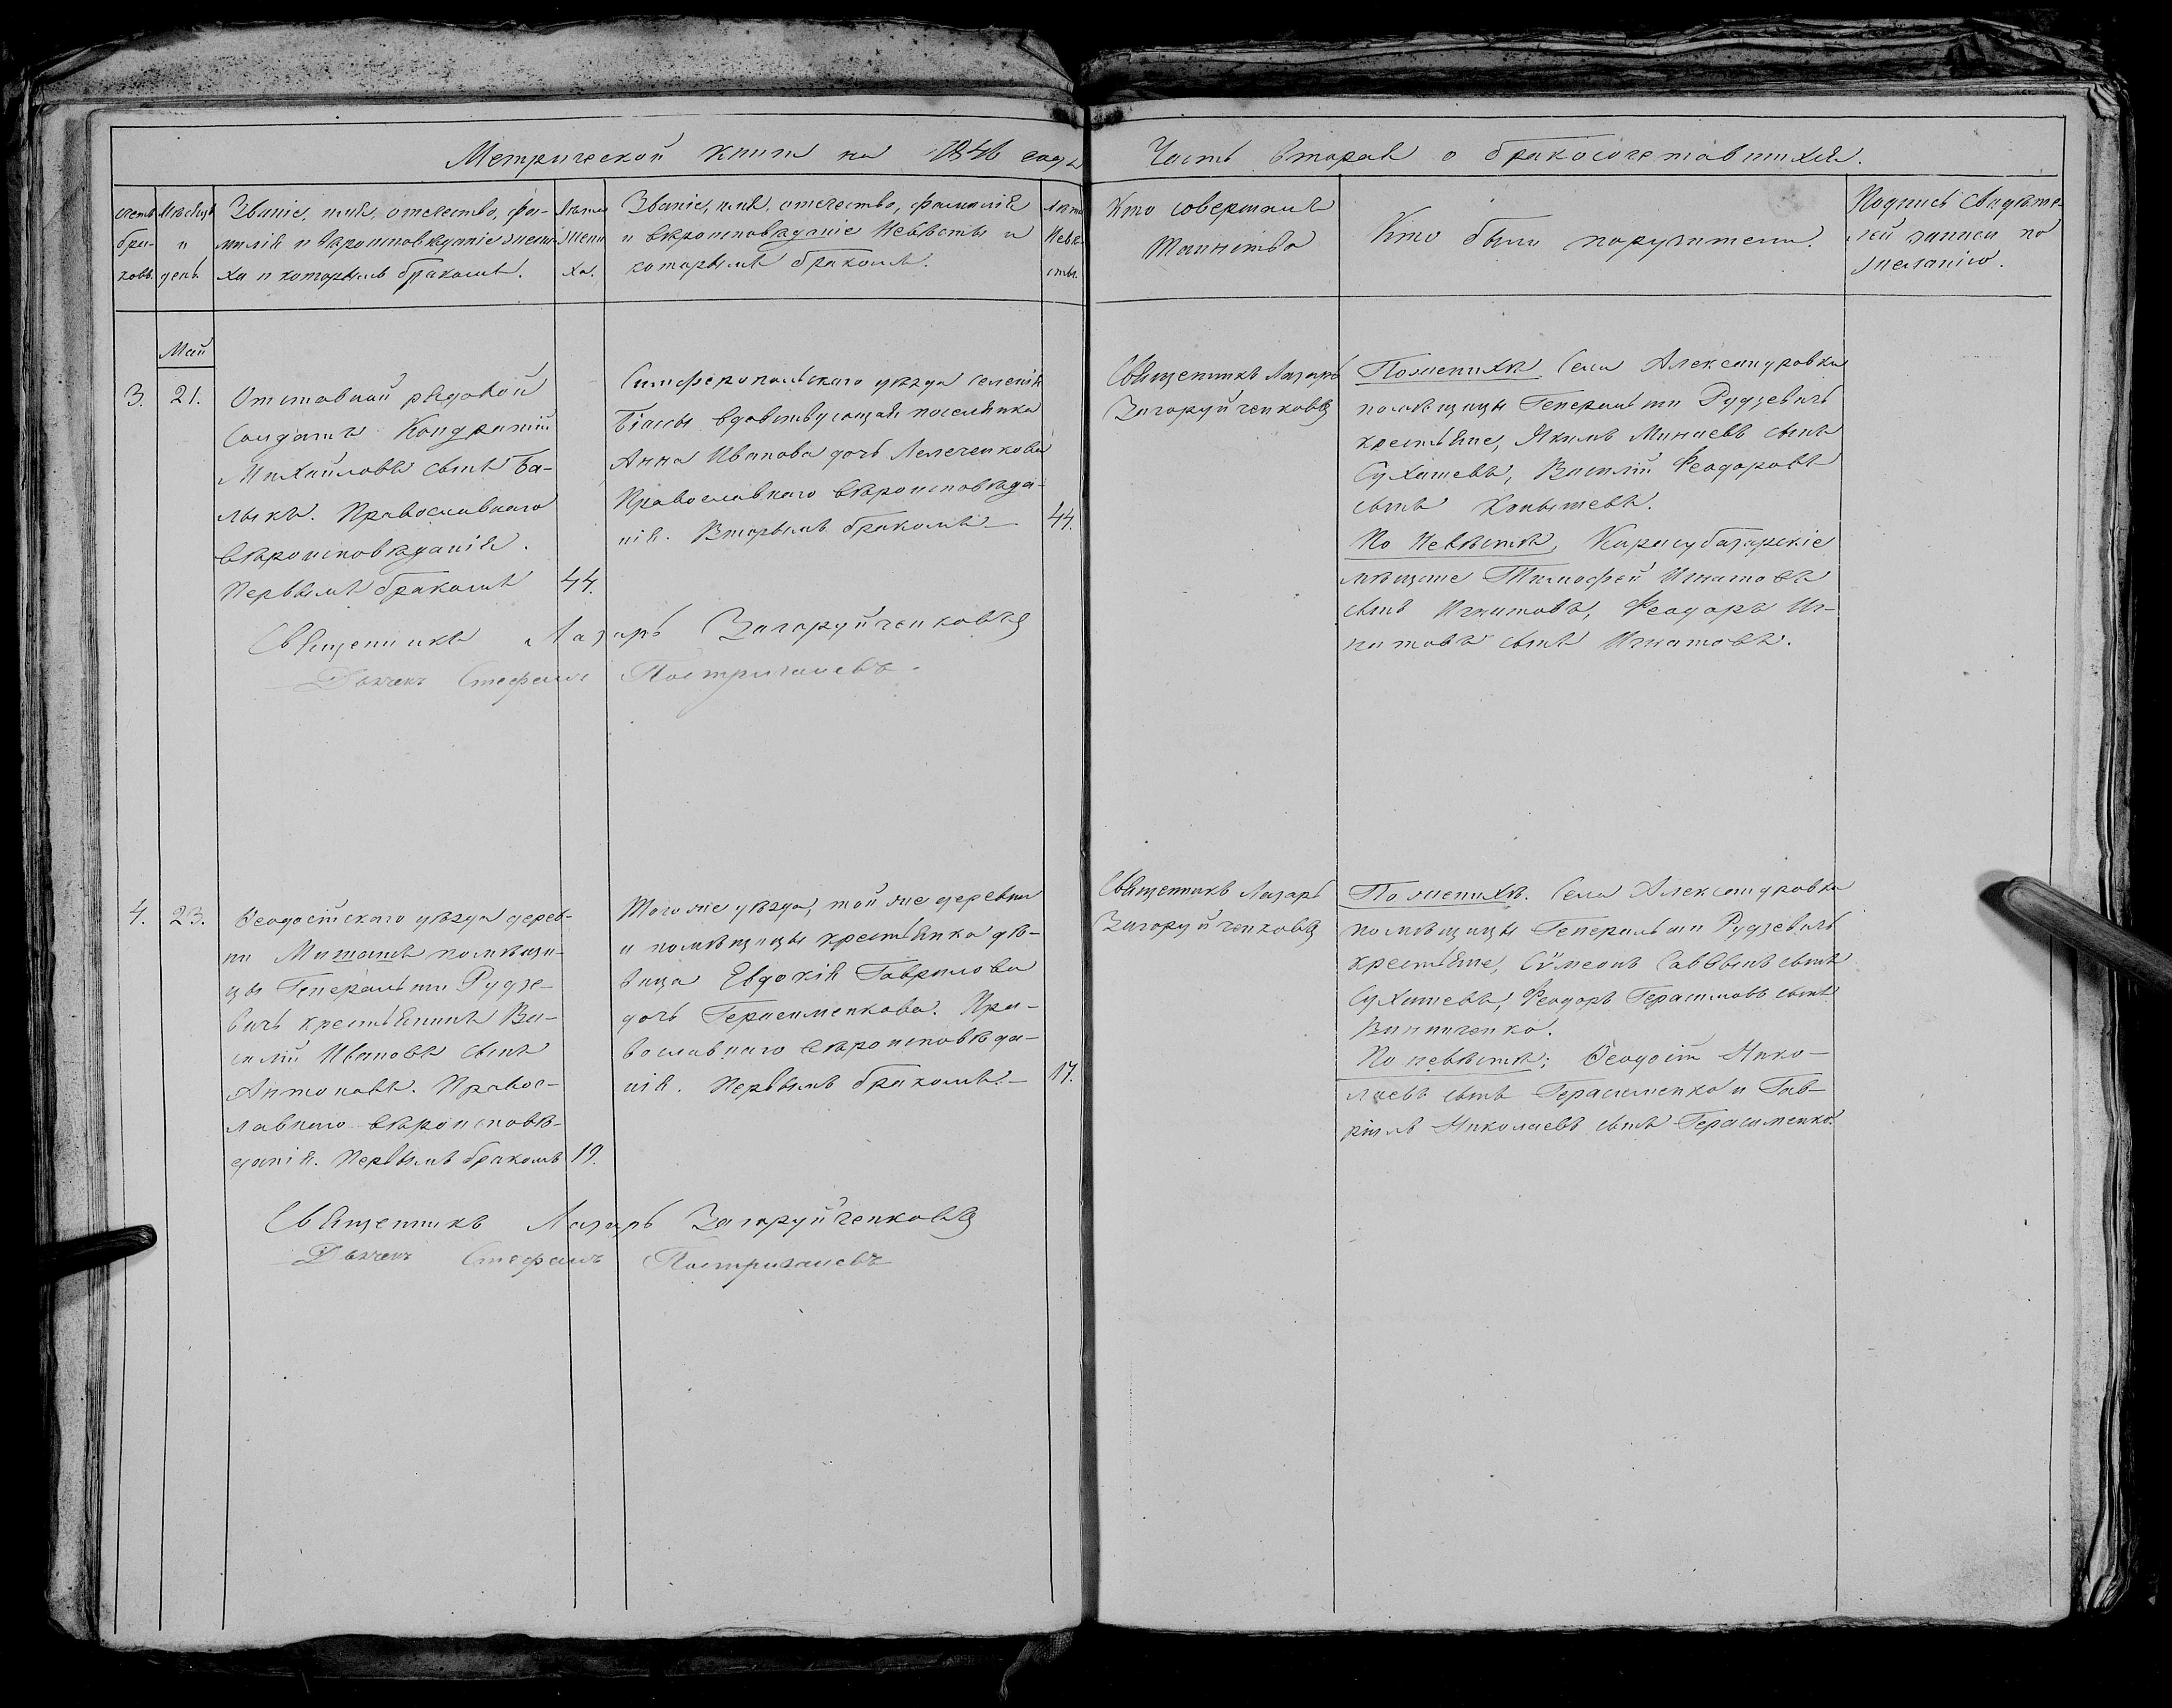 Метрической книги на 1846 года Часть вторая о бракосочетавшихся.
Счетъ бра- ковъ.
Мѣсяцъ и день
Званіе, имя, отечество, фа-
милія и вѣроисповѣданіе жени-
ха и которымъ бракомъ.
Лѣта жени ха.
Званіе, имя, отечество, фамилія
и вѣроисповѣданіе невѣсты и
которымъ бракомъ.
Лѣта невѣ сты.
Кто совершалъ
Таинство
Кто были поручители.
Подпись свидѣте-
лей записи по
желанію.
Май
3. 21.
Отставной рядовой
Солдатъ Кондратій
Михайловъ сынъ Ба-
лыкъ. Православнаго
вѣроисповѣданія.
Первымъ бракомъ 44.
Симферопольскаго уѣзда селенія
вдовствующая поселянка
Анна Иванова дочь
Православнаго вѣроисповѣда-
нія. Вторымъ бракомъ 44.
Священникъ Лазарь
Загоруйченковъ
По женихѣ Села Александровки
помѣщицы Генеральши Рудзевичъ
крестьяне, Якимъ Минаевъ сынъ
Василій Феодоровъ
сынъ
По невѣстѣ, Карасубазарскіе
мѣщане Тимофей Игнатовъ
сынъ Игнатовъ, Феодоръ Иг-
натовъ сынъ Игнатовъ.
Священникъ Лазарь Загоруйченковъ
Дьячекъ Стефанъ
4. 23.
Ѳеодосійскаго уѣзда дерев-
ни помѣщи-
цы Генеральши Рудзе-
вичъ крестьянинъ Ва-
силій Ивановъ сынъ
Антоновъ. Правос-
лавнаго вѣроисповѣ-
данія. Первымъ бракомъ 19.
Того же уѣзда, той же деревни
и помѣщицы крестьянка дѣ-
вица Евдокія Гаврилова
дочь Герасименкова. Пра-
вославнаго вѣроисповѣда-
нія. Первымъ бракомъ. 17.
Священникъ Лазарь
Загоруйченковъ
По женихѣ. Села Александровки
помѣщицы Генеральши Рудзевичъ
крестьяне, Сѵмеонъ Саввинъ сынъ
Феодоръ Герасимовъ сынъ
Винниченко.
По невѣстѣ: Ѳеодосій Нико-
лаевъ сынъ Герасименко и Гав-
ріилъ Николаевъ сынъ Герасименко.
Священникъ Лазарь Загоруйченковъ
Дьячекъ Стефанъ